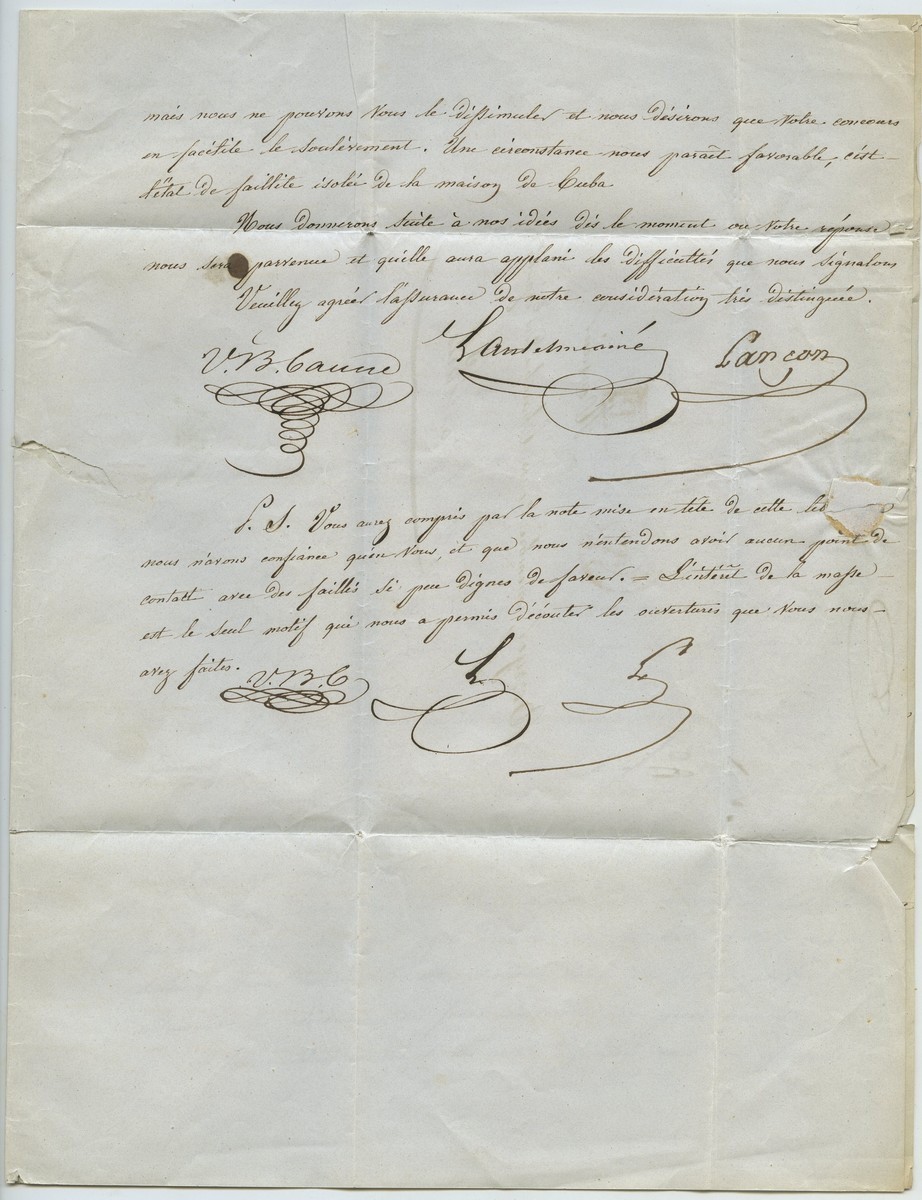 mais nous ne pouvons vous le dissimuler et nous désirons que votre concours
en facilite le soulèvement. Une circonstance nous parait favorable, c'est
l'état de faillite isolée de la maison de Cuba
Nous donnerons suite à nos idées dès le moment ou votre réponse
nous sera parvenue et qu'elle aura applani les difficultés que nous signalons
Veuillez agréer l'assurance de notre considération très distinguée.
V. B. Caune Antelme ainé Lançon
P. S. Vous aurez compris par la note mise en tête de cette
nous n'avons confiance qu'en vous, et que nous n'entendons avoir aucun point de
contact avec des faillis si peu dignes de faveur. = L'intérêt de la masse
est le seul motif qui nous a permis d'écouter les ouvertures que vous nous
avez faites.
V. B. C L